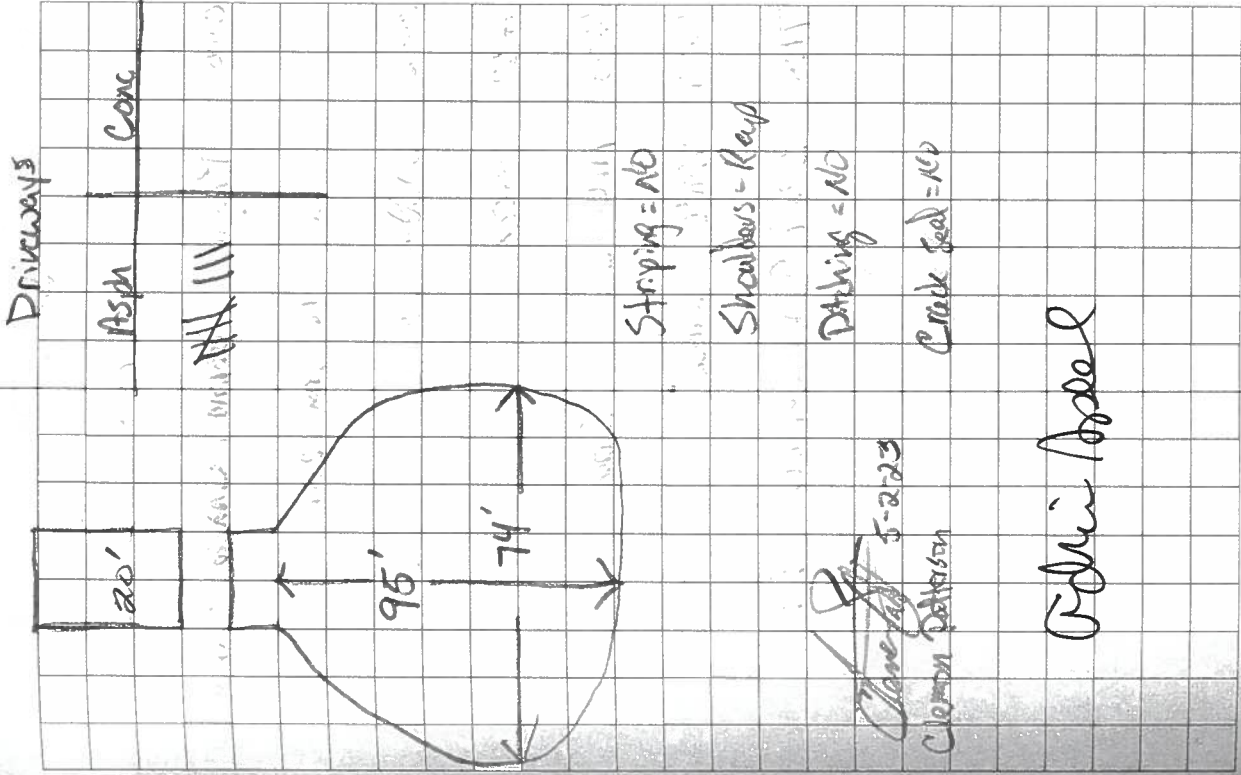 Driveways
Asph Conc
20'
95'
74'
Striping = NO
Shoulders - Rap
Ditching = NO
Crack Seal = NO
5-2-23
Clemon Patterson